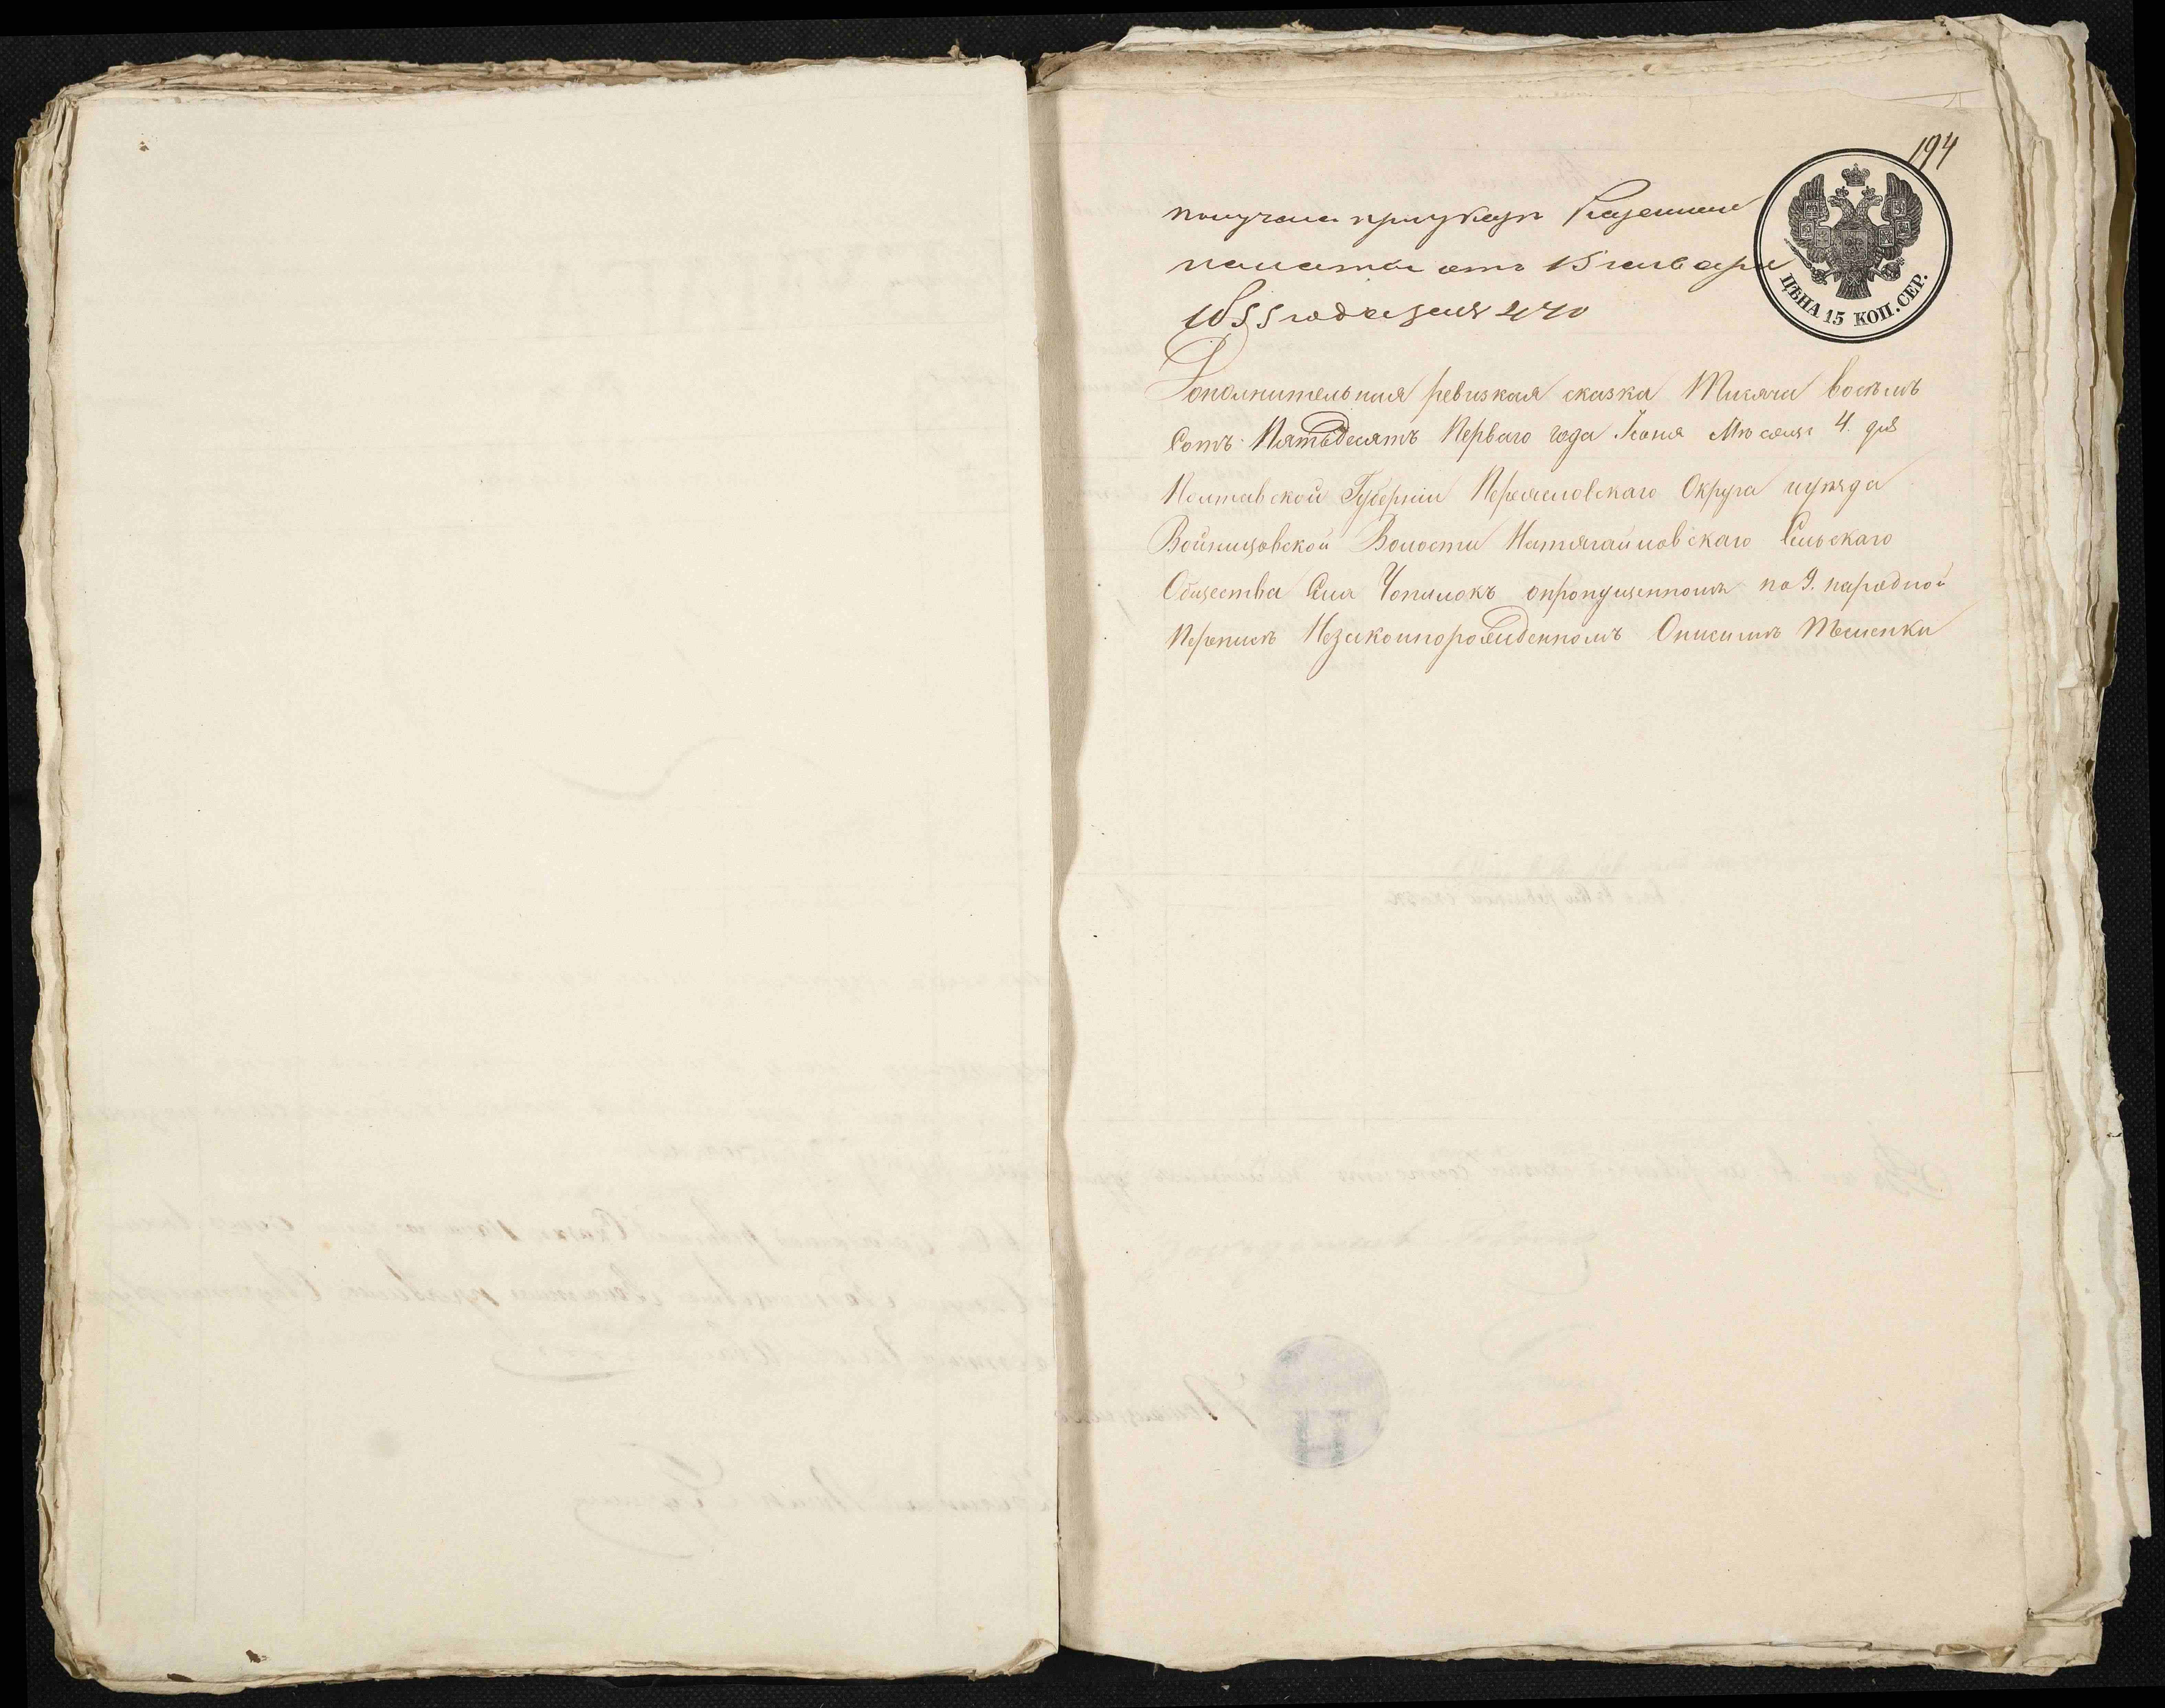 194
получена при указе Казенной
палаты отъ 15 января
1855 года за № 240
ЦѢНА 15 КОП. СЕР.
Дополнительная ревизкая сказка Тисяча восѣмъ
Сотъ Пятьдесятъ Перваго года Іюня Мѣсяця 4. дня
Полтавской Губерніи Переяславскаго Округа иуѣзда
Войницовской Волости Натягайловскаго Сельскаго
Общества Села Чопилокъ опропущенномъ по 9. народной
Переписѣ Незаконнорожденномъ